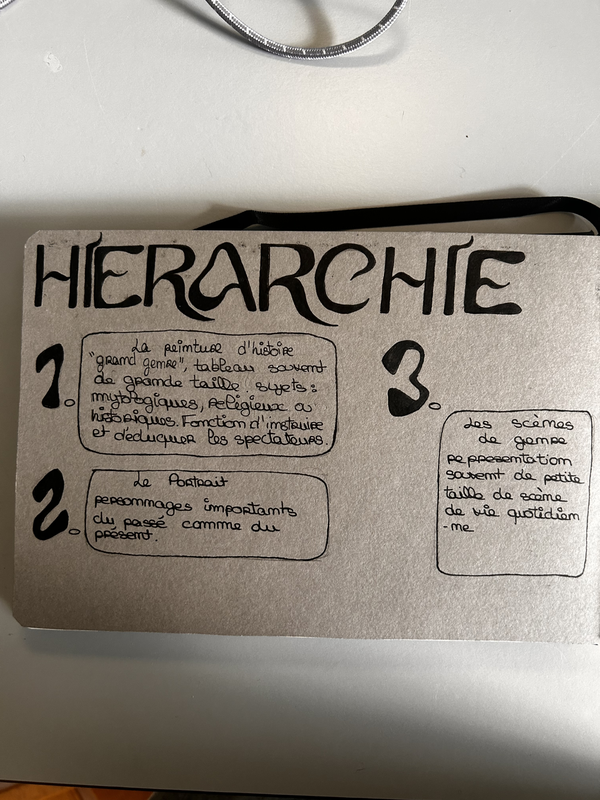 HIERARCHIE
1.
La peinture d'histoire
"grand genre", tableau souvent
de grande taille. sujets :
mythologiques, religieux ou
historiques. Fonction d'instruire
et d'éduquer les spectateurs.
2.
Le Portrait
personnages importants
du passé comme du
présent.
3.
Les scènes
de genre
representation
souvent de petite
taille de scène
de vie quotidien
-ne